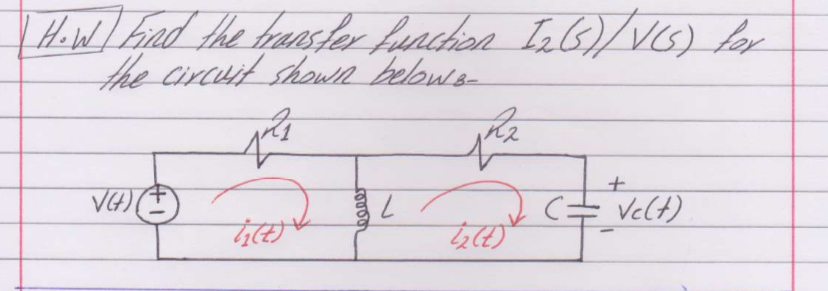 H.W Find the transfer function I₂(s)/V(s) for
the circuit shown below:-
R₁ R₂
V(t) + - L C + Vc(t) -
i₁(t) i₂(t)